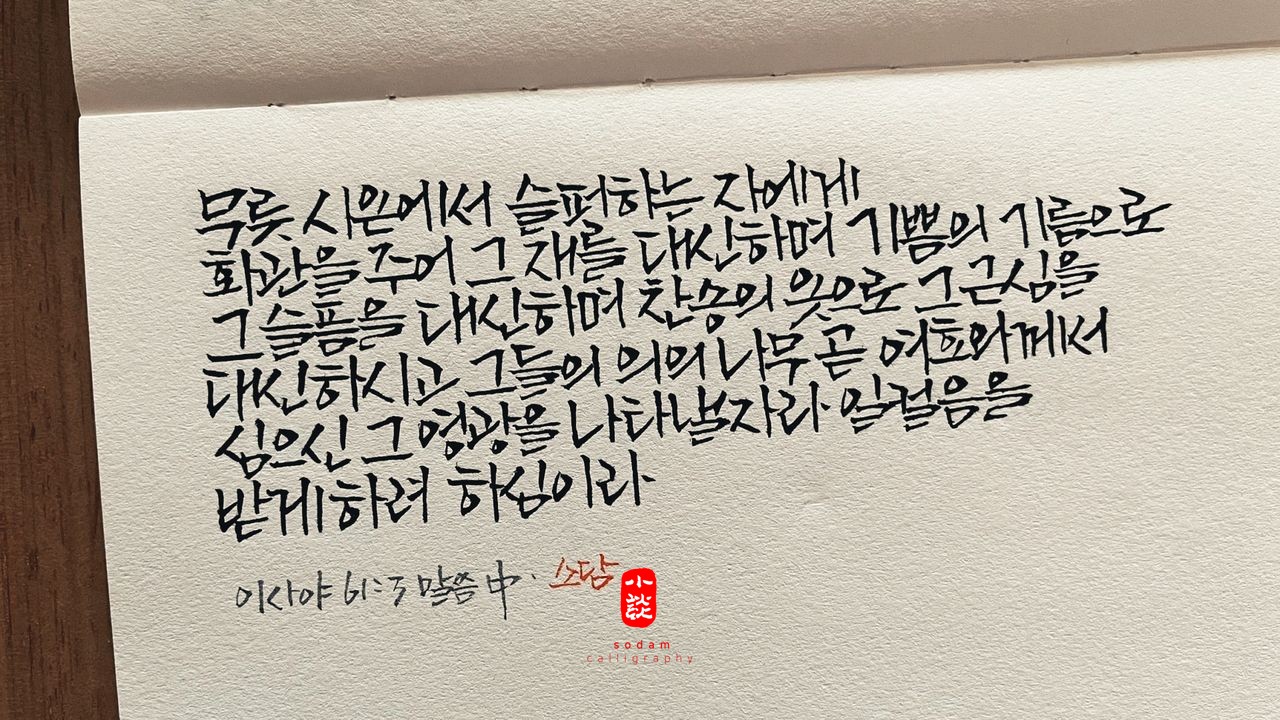 무릇 시온에서 슬퍼하는 자에게
화관을 주어 그 재를 대신하며 기쁨의 기름으로
그 슬픔을 대신하며 찬송의 옷으로 그 근심을
대신하시고 그들의 의의 나무 곧 여호와께서
심으신 그 영광을 나타낼 자라 일컬음을
받게 하려 하심이라
이사야 61:3 말씀 中. 소담
小談
sodam
calligraphy